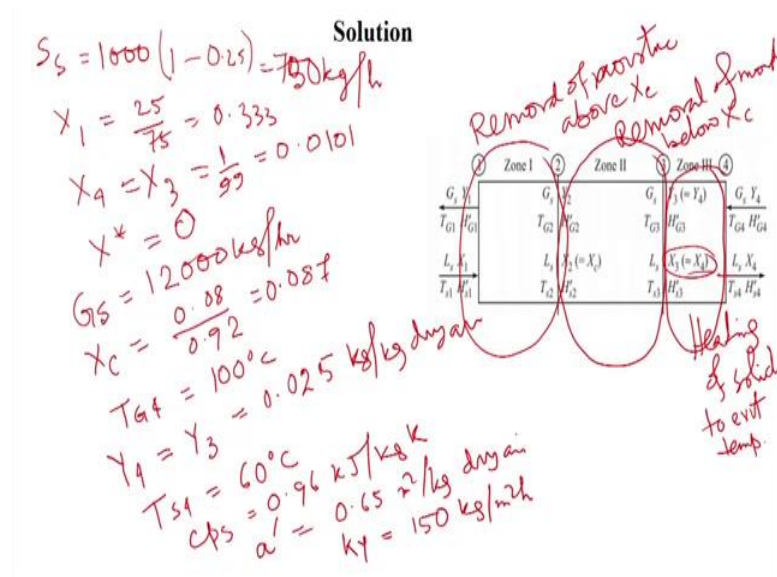 Solution
S_s = 1000 (1 - 0.25) = 750 kg/h
X_1 = 25/75 = 0.333
X_4 = X_3 = 1/99 = 0.0101
X* = 0
G_s = 12000 kg/hr
X_c = 0.08/0.92 = 0.087
T_G4 = 100°C
Y_4 = Y_3 = 0.025 kg/kg dry air
T_S4 = 60°C
c_ps = 0.96 kJ/kg K
a' = 0.65 m²/kg dry air
k_Y = 150 kg/m²h
Removal of moisture
above X_c
Removal of moist
below X_c
① Zone I ② Zone II ③ Zone III ④
G_s Y_1 G_s Y_2 G_s Y_3 (= Y_4) G_s Y_4
T_G1 H'_G1 T_G2 H'_G2 T_G3 H'_G3 T_G4 H'_G4
L_s X_1 L_s X_2 (= X_c) L_s X_3 (= X_4) L_s X_4
T_s1 H'_s1 T_s2 H'_s2 T_s3 H'_s3 T_s4 H'_s4
Heating
of solid
to exit
temp.